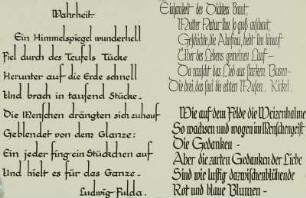 Wahrheit.
Ein Himmelspiegel wunderhell
Fiel durch des Teufels Tücke
Herunter auf die Erde schnell
Und brach in tausend Stücke.
Die Menschen drängten sich zuhauf
Geblendet von dem Glanze:
Ein jeder fing ein Stückchen auf
Und hielt es für das Ganze.
Ludwig Fulda.
Einfachheit des Dichters
Mutter Natur
Geschichte, die
Über des Lebens gemeinen Lauf
So rauscht das Lied aus starkem Busen
Die drei, das sind die echten Musen.
Wie auf dem Felde die Weizenhalme
So wachsen und wogen im Menschengeist
Die Gedanken -
Aber die zarten Gedanken der Liebe
Sind wie lustig dazwischenblühende
Rot und blaue Blumen -